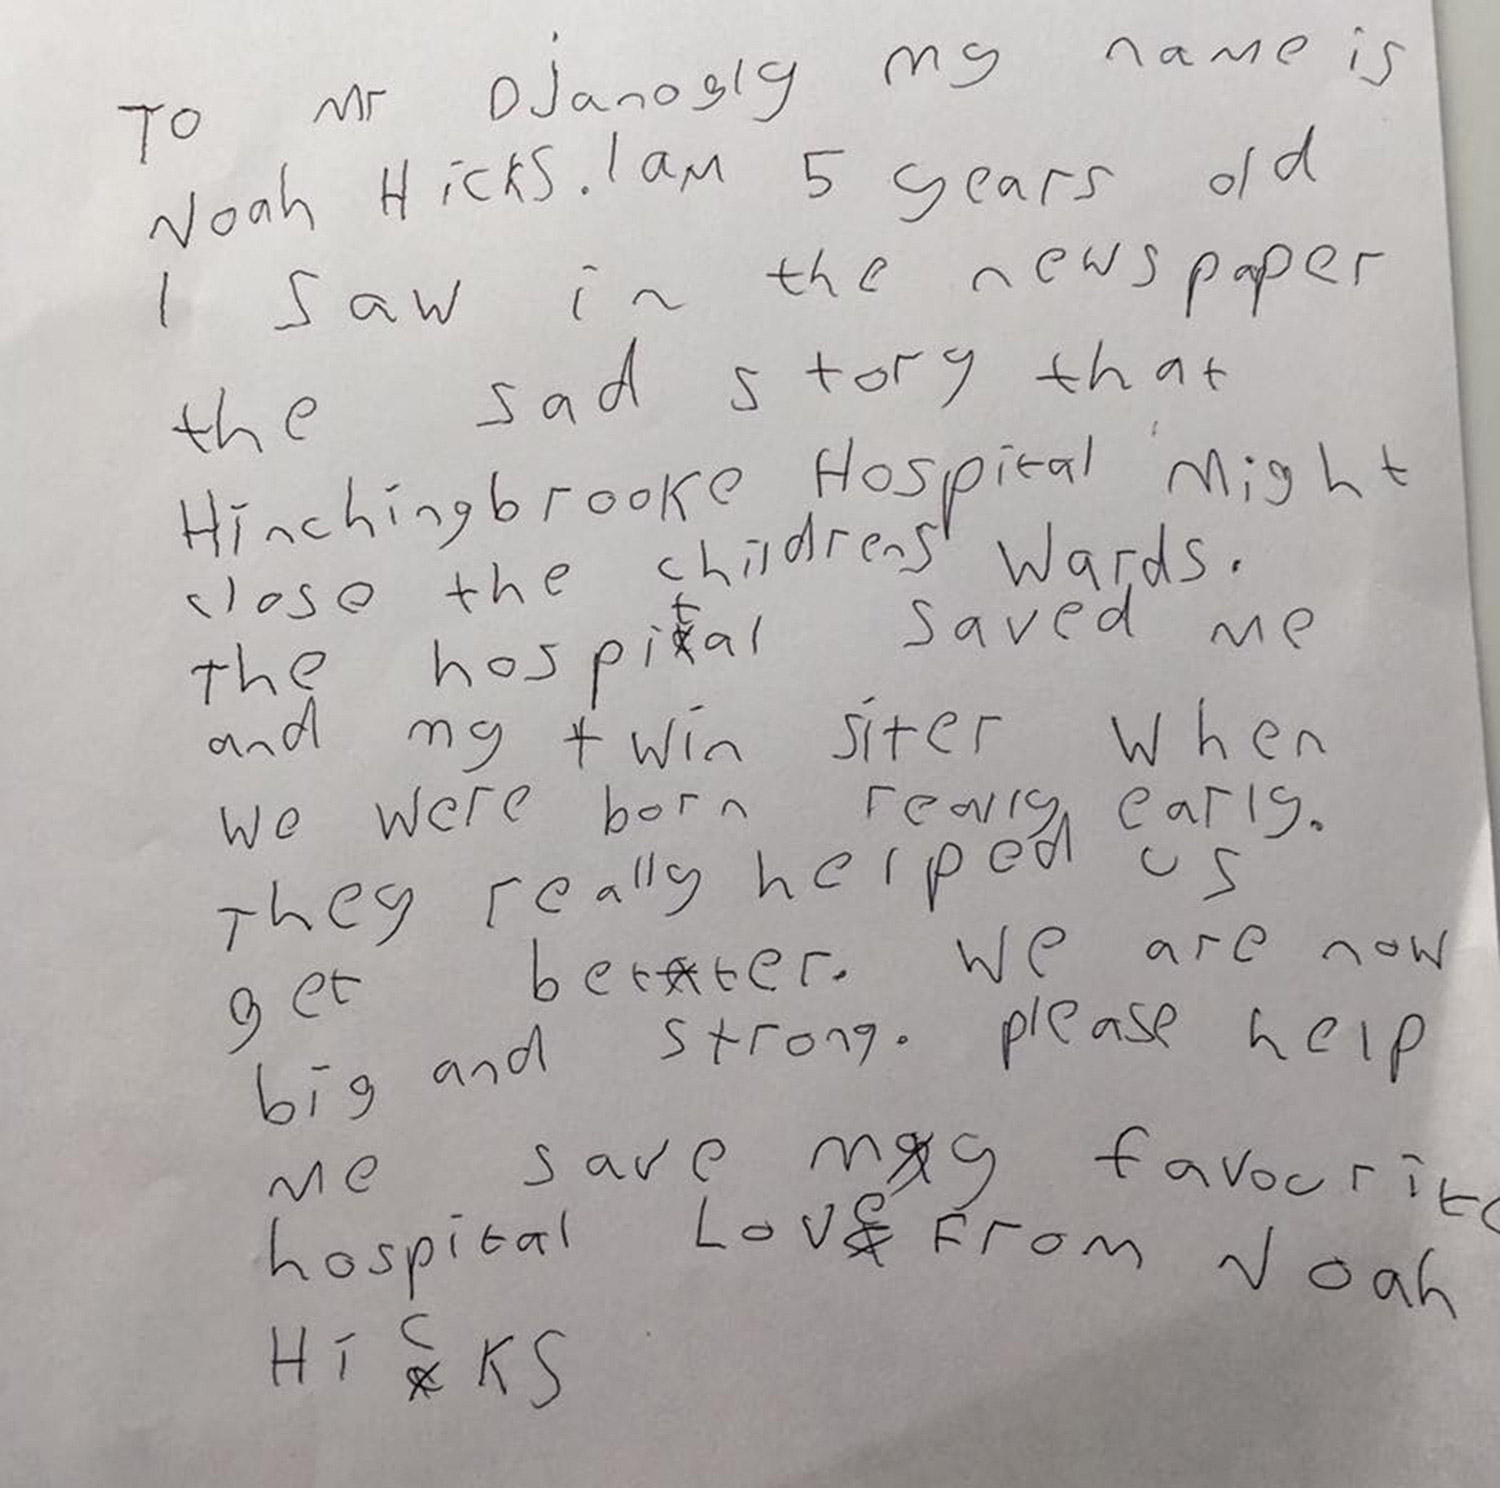 To Mr Djanogly my name is
Noah Hicks. I am 5 years old
I saw in the newspaper
the sad story that
Hinchingbrooke Hospital Might
close the childrens' Wards.
The hospital saved me
and my twin siter when
we were born really early.
They really helped us
get better. We are now
big and strong. please help
me save my favourite
hospital Love From Noah
Hicks